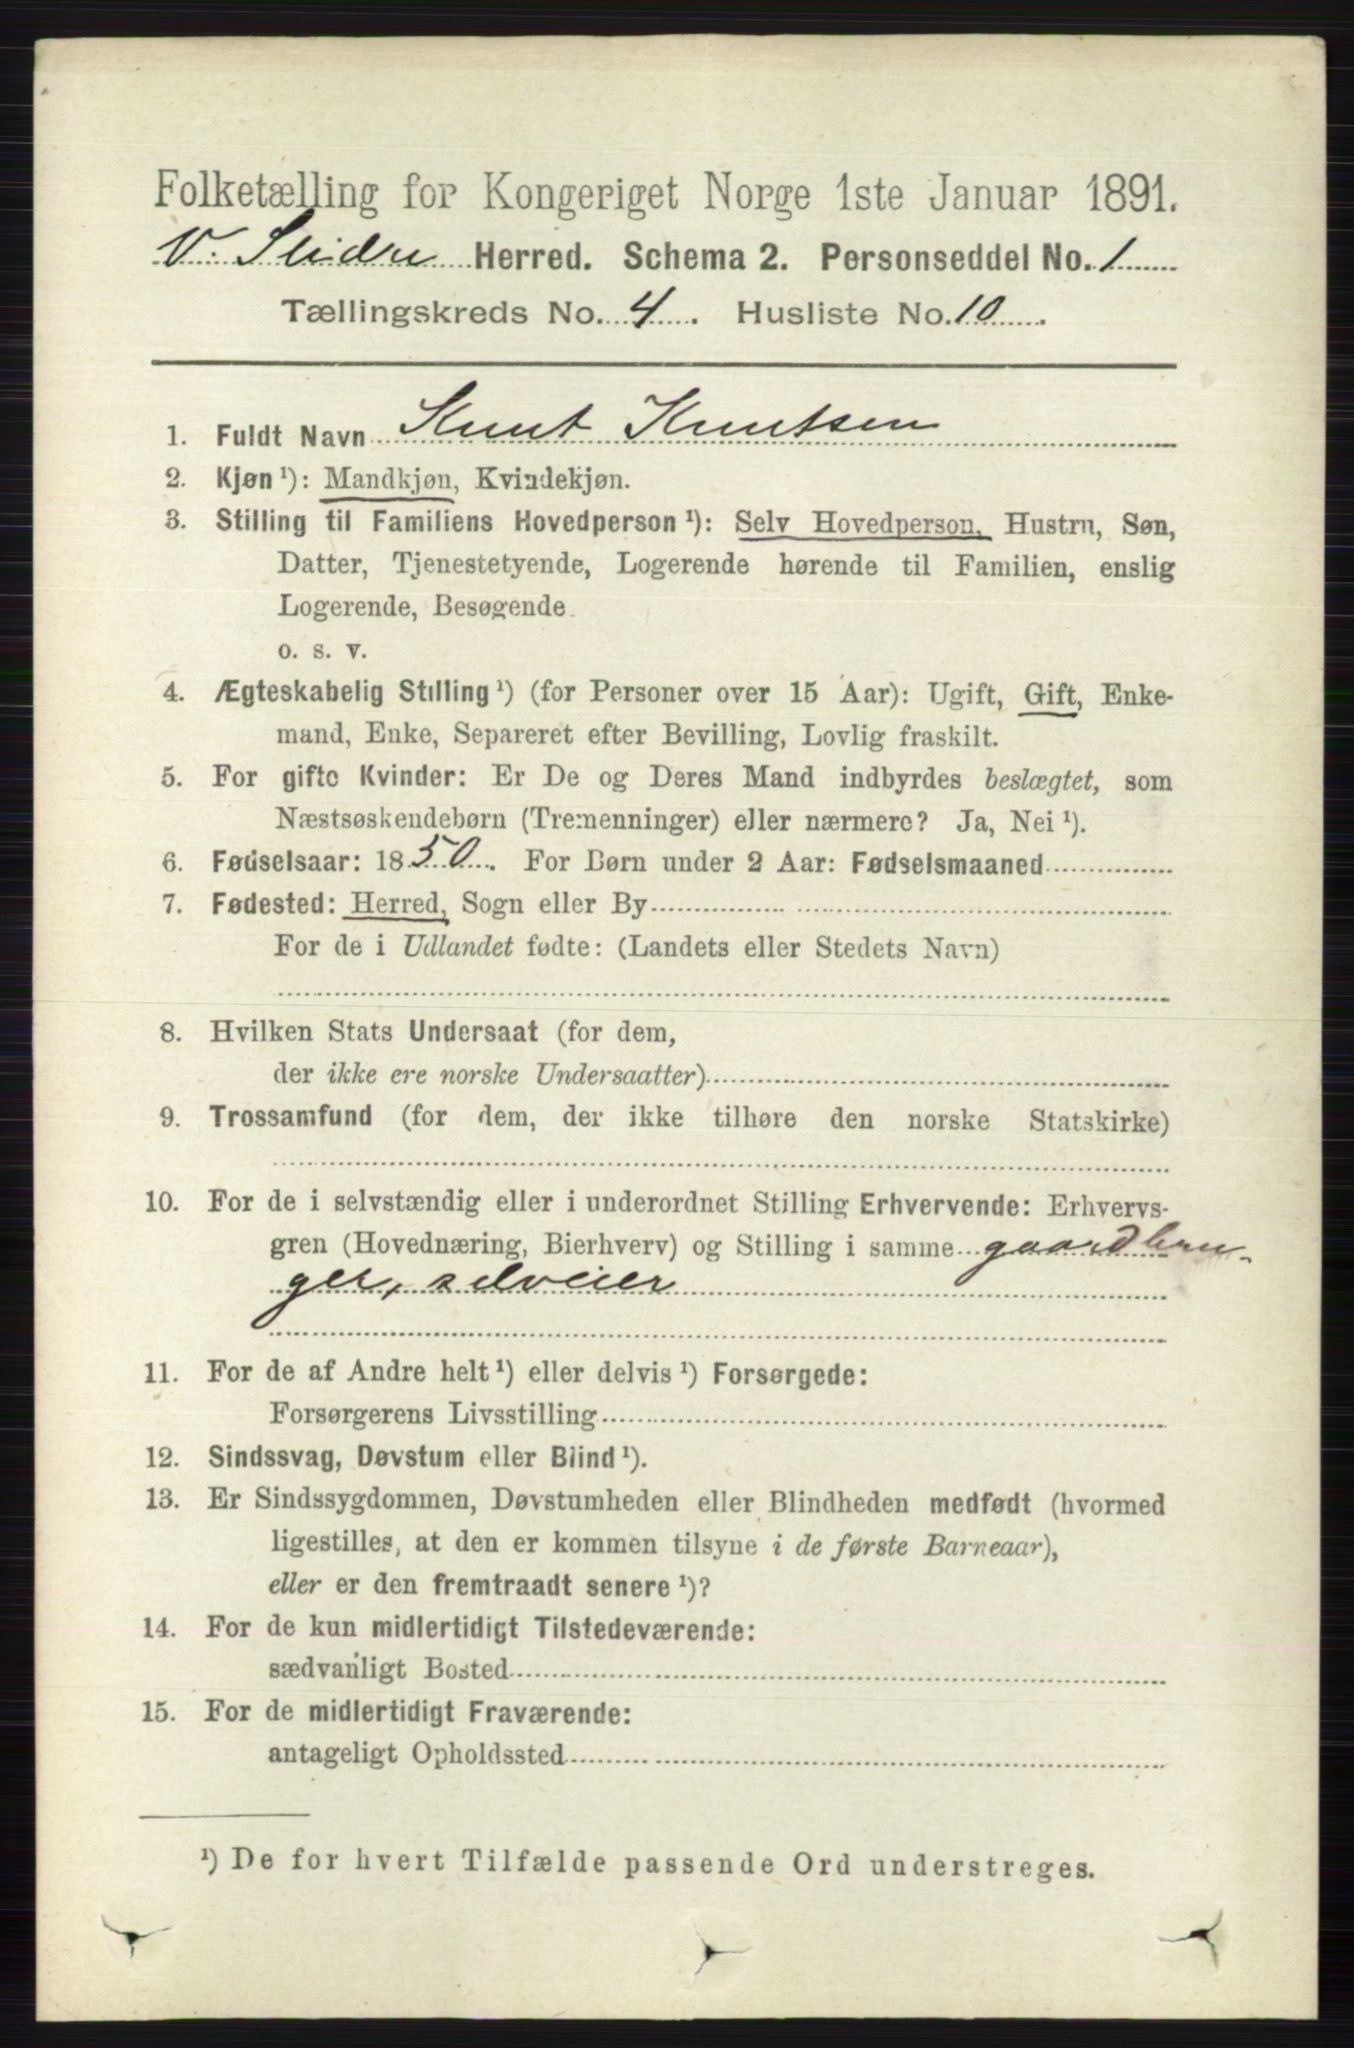 Folketælling for Kongeriget Norge 1ste Januar 1891.
V. Slidre Herred. Schema 2. Personseddel No. 1
Tællingskreds No. 4. Husliste No. 10.
1. Fuldt Navn Knut Knutsen
2. Kjøn ¹): Mandkjøn, Kvindekjøn.
3. Stilling til Familiens Hovedperson ¹): Selv Hovedperson, Hustru, Søn,
Datter, Tjenestetyende, Logerende hørende til Familien, enslig
Logerende, Besøgende
o. s. v.
4. Ægteskabelig Stilling ¹) (for Personer over 15 Aar): Ugift, Gift, Enke-
mand, Enke, Separeret efter Bevilling, Lovlig fraskilt.
5. For gifte Kvinder: Er De og Deres Mand indbyrdes beslægtet, som
Næstsøskendebørn (Tremenninger) eller nærmere? Ja, Nei ¹).
6. Fødselsaar: 1850. For Børn under 2 Aar: Fødselsmaaned
7. Fødested: Herred, Sogn eller By
For de i Udlandet fødte: (Landets eller Stedets Navn)
8. Hvilken Stats Undersaat (for dem,
der ikke ere norske Undersaatter)
9. Trossamfund (for dem, der ikke tilhøre den norske Statskirke)
10. For de i selvstændig eller i underordnet Stilling Erhvervende: Erhvervs-
gren (Hovednæring, Bierhverv) og Stilling i samme gaardbru-
ger, selveier
11. For de af Andre helt ¹) eller delvis ¹) Forsørgede:
Forsørgerens Livsstilling
12. Sindssvag, Døvstum eller Blind ¹).
13. Er Sindssygdommen, Døvstumheden eller Blindheden medfødt (hvormed
ligestilles, at den er kommen tilsyne i de første Barneaar),
eller er den fremtraadt senere ¹)?
14. For de kun midlertidigt Tilstedeværende:
sædvanligt Bosted
15. For de midlertidigt Fraværende:
antageligt Opholdssted
¹) De for hvert Tilfælde passende Ord understreges.